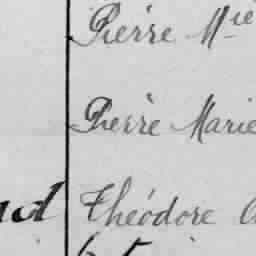 Pierre Mie
Pierre Marie
Théodore